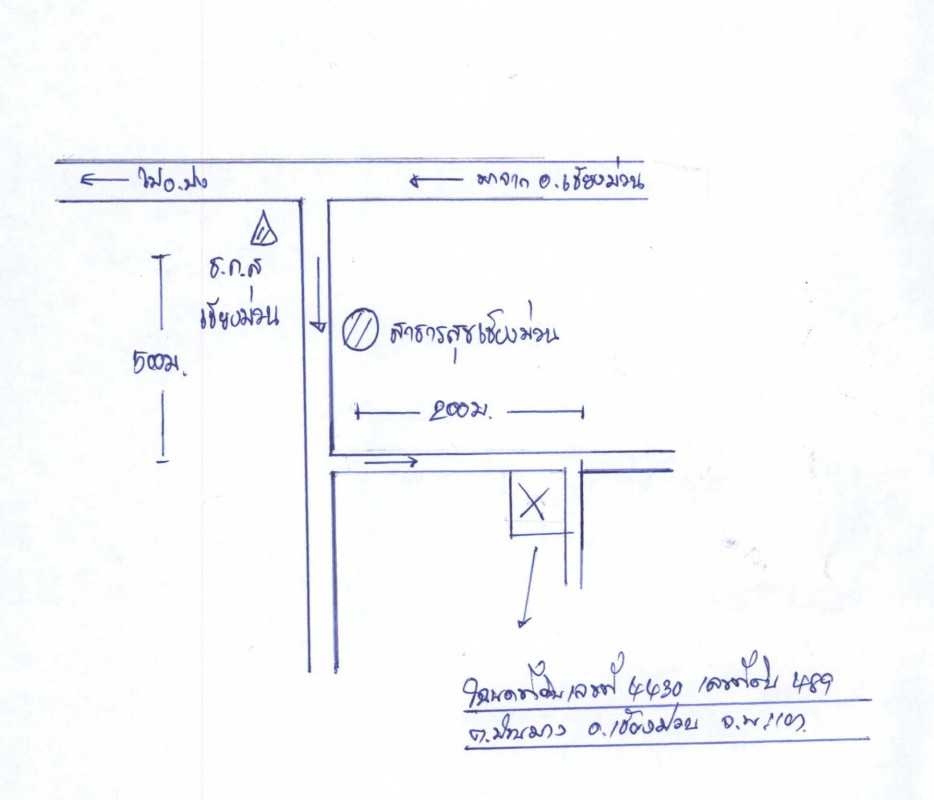 ไป อ.ปง
มาจาก อ.เชียงม่วน
ธ.ก.ส
เชียงม่วน
สาธารสุขเชียงม่วน
500ม.
200ม.
โฉนดที่ดินเลขที่ 4430 เลขที่ดิน 489
ต.บ้านมาง อ.เชียงม่วน จ.พะเยา